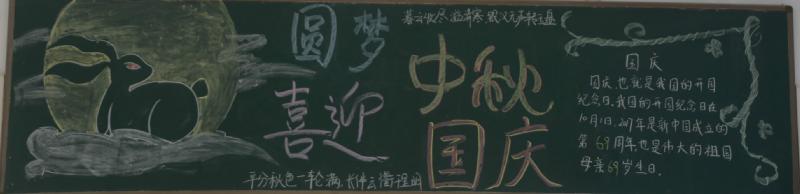 圆梦
喜迎
平分秋色一轮满,长伴云衢
暮云收尽溢清寒,银汉无声转玉盘
中秋
国庆
国庆
国庆,也就是我国的开国
纪念日。我国的开国纪念日在
10月1日,
年是新中国成立的
第69周年,也是伟大的祖国
母亲69岁生日。